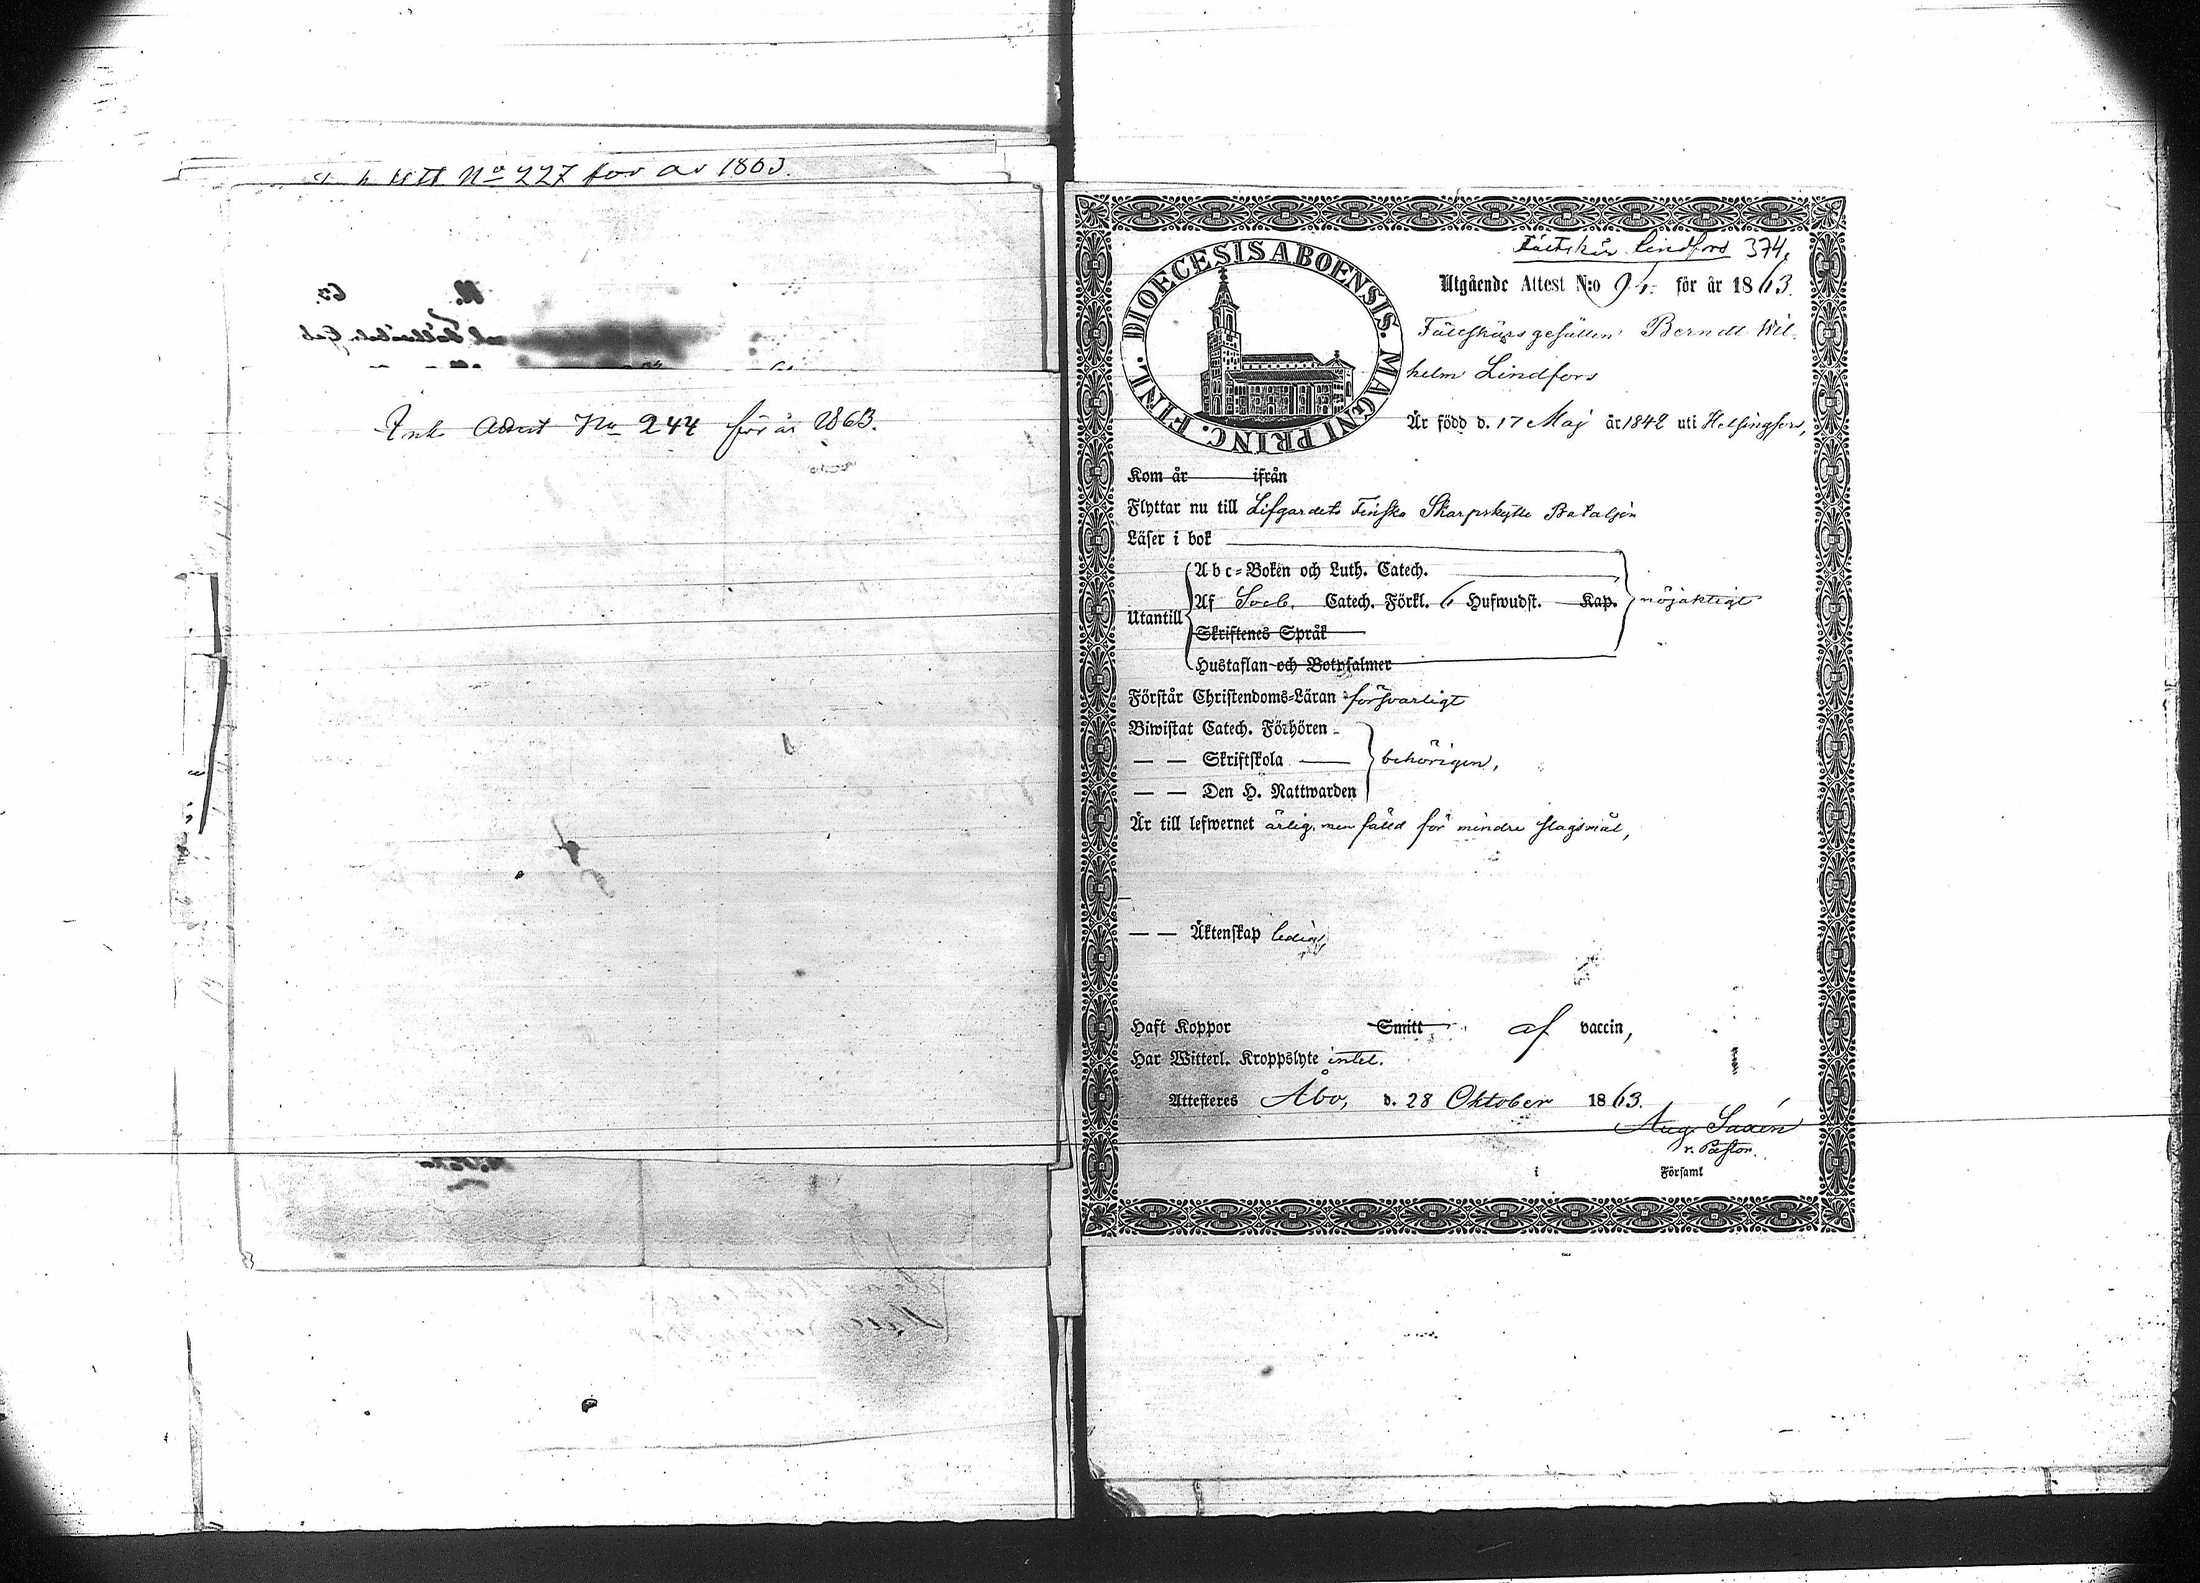 No 227 för år 1863.
Ink. Attest No 244 för år 1863.
Fältskär Lindfors 374.
DIOECESIS ABOENSIS. MAGNI PRINC. FINL.
Utgående Attest N:o 94. för år 1863.
Fältskärsgesällen Berndt Wil-
helm Lindfors
Är född d. 17 Maj år 1842 uti Helsingfors,
Kom år ifrån
Flyttar nu till Lifgardets Finska Skarpskytte Bataljon
Läser i bok
Abc-Boken och Luth. Catech.
Utantill Af Sveb. Catech. Förkl. 6 Hufwudst. Kap. nöjaktigt
Skriftenes Språk
Hustaflan och Botpsalmer
Förstår Christendoms-Läran försvarligt
Biwistat Catech. Förhören
— — Skriftskola behörigen,
— — Den H. Nattwarden
Är till lefwernet ärlig, men fälld för mindre slagsmål,
— — Äktenskap ledig,
Haft Koppor Smitt af vaccin,
Har Witterl. Kroppslyte intet.
Attesteres Åbo, d. 28 Oktober 1863.
Aug. Saxén
v. Pastor.
i Församl